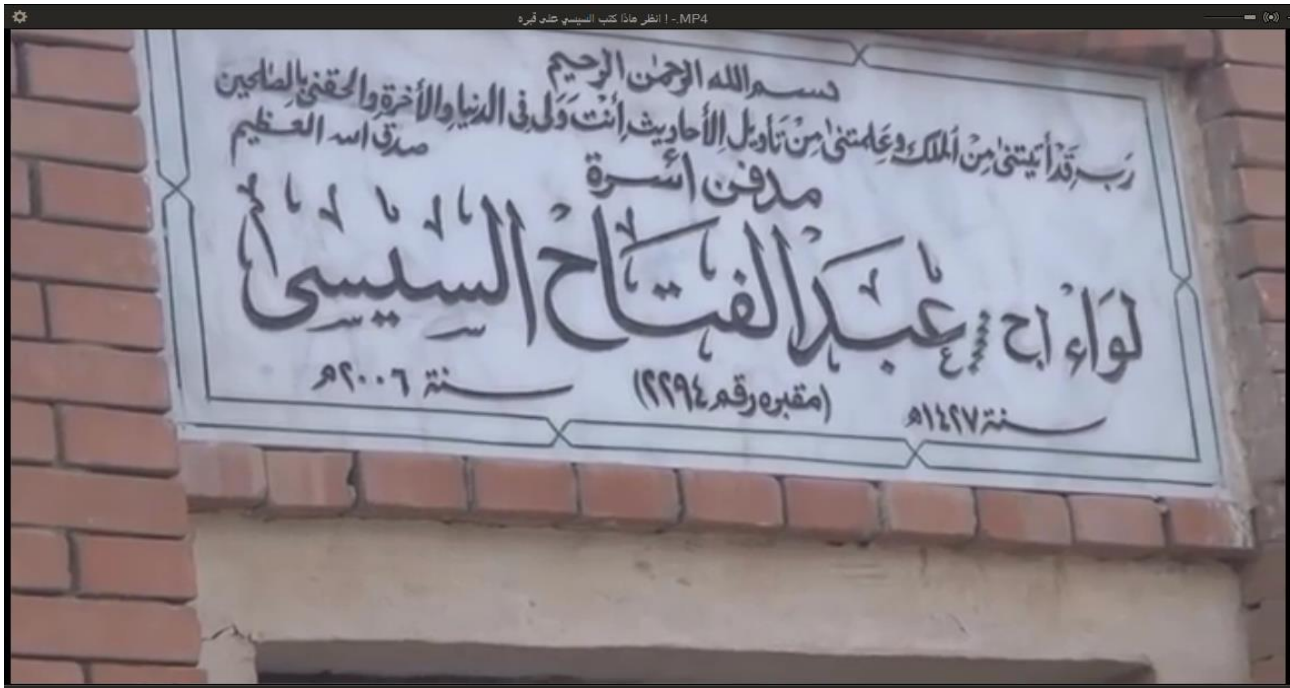 ! انظر ماذا كتب السيسي على قبره -.MP4
بسم الله الرحمن الرحيم
رب قد أتيتنى من الملك وعلمتنى من تأويل الأحاديث أنت ولى فى الدنيا والأخرة والحقنى بالصلحين
صدق الله العظيم
مدفن أسرة
لواء اح عبد الفتاح السيسى
سنة ١٤٢٧هـ (مقبره رقم ٢٢٩٤) سنة ٢٠٠٦م